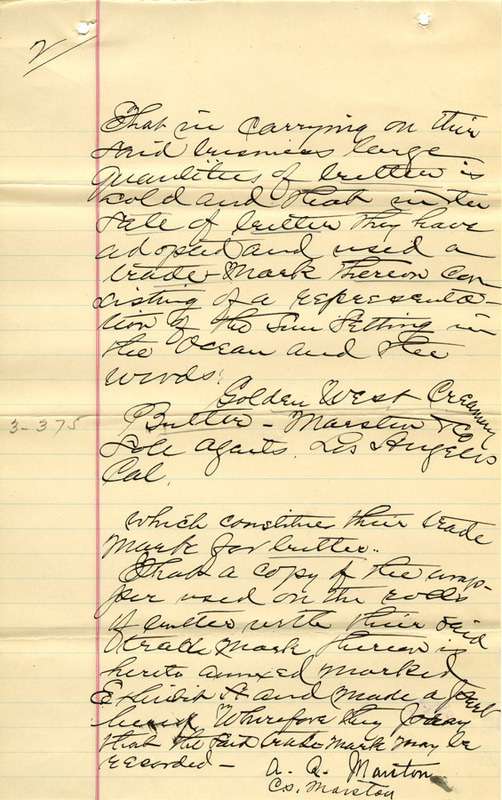 2
That in carrying on their
said business large
quantities of butter is
sold and that in the
sale of butter they have
adopted and used a
trade-Mark thereon Con
sisting of a representa-
tion of the Sun Setting in
the Ocean and the
words:
Golden West Creamery
Butter - Marston & Co
3-375
Sole Agents. Los Angeles
Cal.
which constitutes their trade
mark for butter.
That a copy of the wrap-
per used on the rolls
of butter with their said
trade mark thereon is
hereto annexed marked
Exhibit A and made a part
hereof. Wherefore they pray
that the said trade mark may be
recorded -
A. A. Marston
Co. Marston